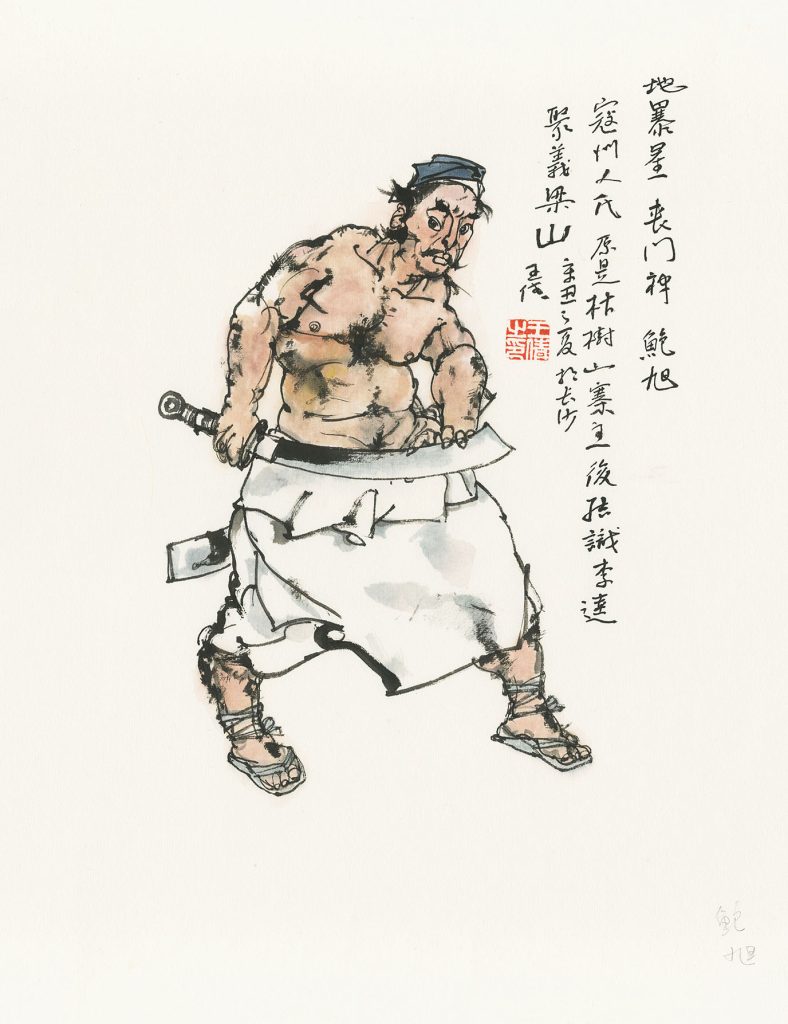 地暴星 喪门神 鮑旭
寇州人氏 原是枯樹山寨主 後结識李逵
聚義梁山
辛丑之夏於长沙
王
鮑
旭